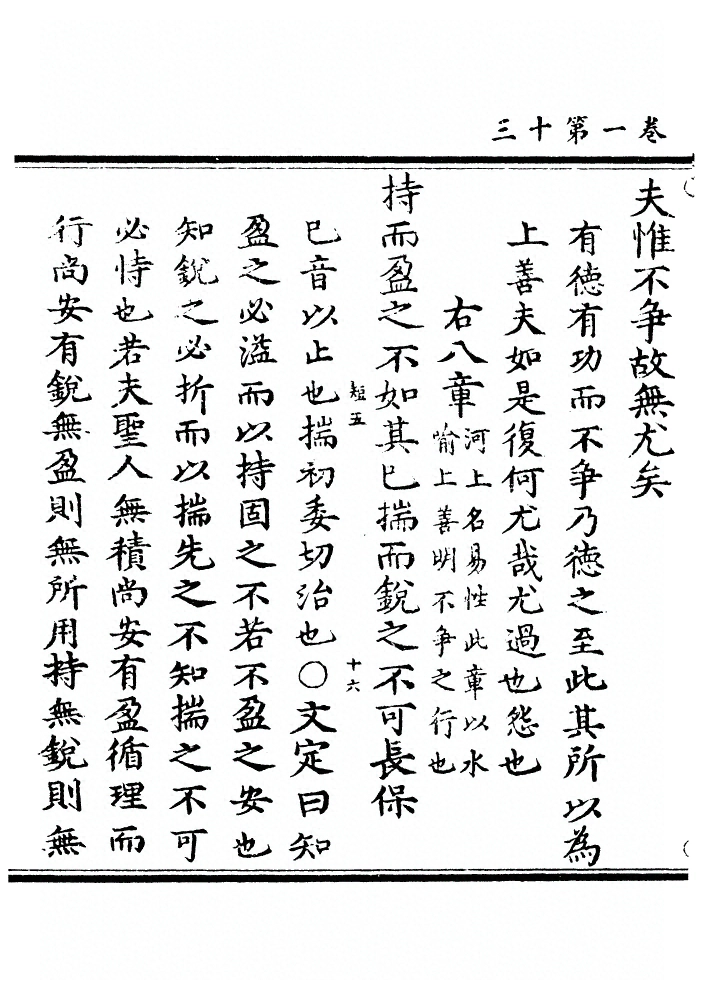 三十第一巻
夫惟不争故無尤矣
有德有功而不争乃德之至此其所以為
上善夫如是復何尤哉尤過也怨也
右八章河上名易性此章以水
喻上善明不争之行也
持而盈之不如其已揣而銳之不可長保
已音以止也揣初委切治也〇文定曰知
短五
十六
盈之必溢而以持固之不若不盈之安也
知銳之必折而以揣先之不知揣之不可
必恃也若夫聖人無積尚安有盈循理而
行尚安有銳無盈則無所用持無銳則無